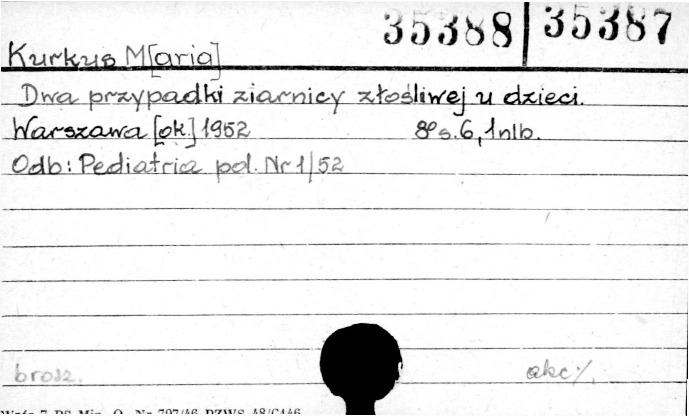 35388 | 35387
Kurkus M[aria]
Dwa przypadki ziarnicy złośliwej u dzieci.
Warszawa [ok.] 1952 8° s. 6, 1 nlb.
Odb: Pediatria pol. Nr 1/52
brosz. akc %.
Wzór 7 PS Min. O. Nr 797/46 PZWS 48/C446